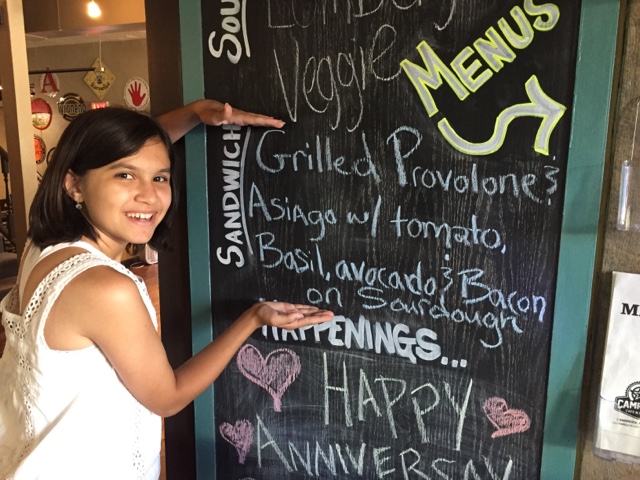 Sou
Lombardy
Veggie
MENUS
SANDWICH
Grilled Provolone &
Asiago w/ tomato,
Basil, avocado & Bacon
on Sourdough
HAPPENINGS...
HAPPY
ANNIVERSAY
A
M
CAMP